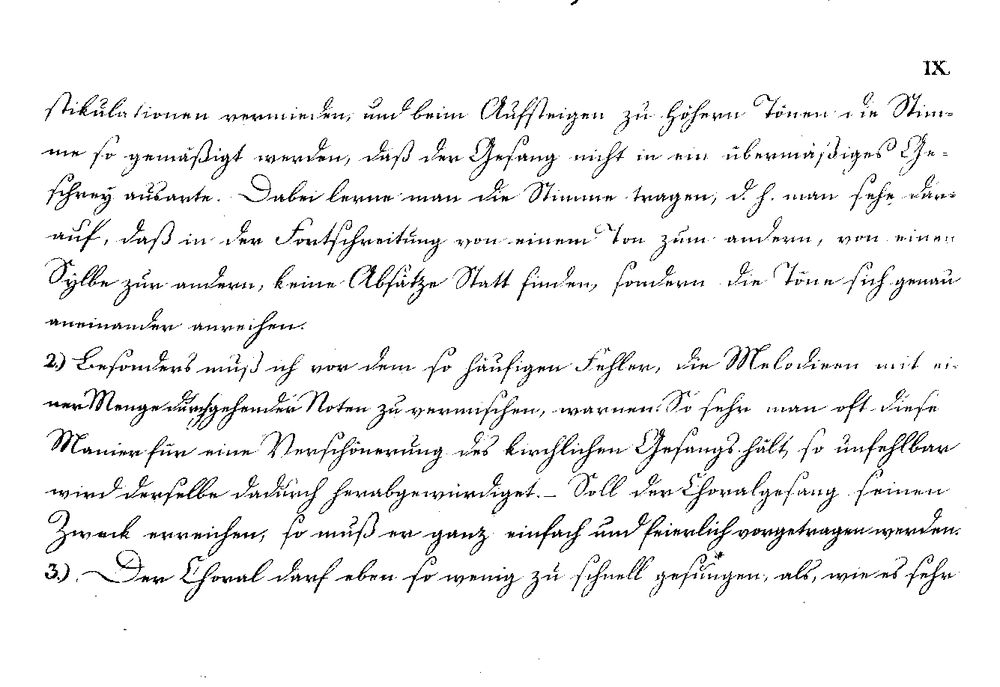 IX.
stikulationen vermieden, und beim Aufsteigen zu höhern Tönen die Stim-
me so gemäßigt werden, daß der Gesang nicht in ein übermäßiges Ge-
schrey ausarte. Dabei lerne man die Stimme tragen, d. h. man sehe dar-
auf, daß in der Fortschreitung von einem Ton zum andern, von einer
Sylbe zur andern, keine Absätze Statt finden, sondern die Töne sich genau
aneinander anreihen.
2.) Besonders muß ich vor dem so häufigen Fehler, die Melodieen mit ei-
ner Menge durchgehender Noten zu vermischen, warnen. So sehr man oft diese
Manier für eine Verschönerung des kirchlichen Gesangs hält, so unfehlbar
wird derselbe dadurch herabgewürdiget. – Soll der Choralgesang seinen
Zweck erreichen, so muß er ganz einfach und feierlich vorgetragen werden.
3.) Der Choral darf eben so wenig zu schnell gesungen, als, wie es sehr